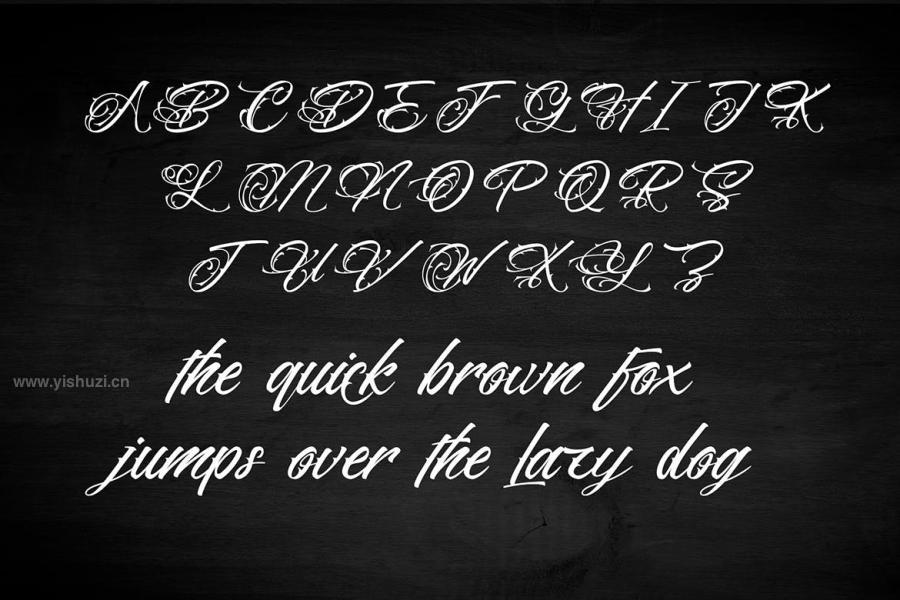 A B C D E F G H I J K
L M N O P Q R S
T U V W X Y Z
the quick brown fox
www.yishuzi.cn
jumps over the lazy dog